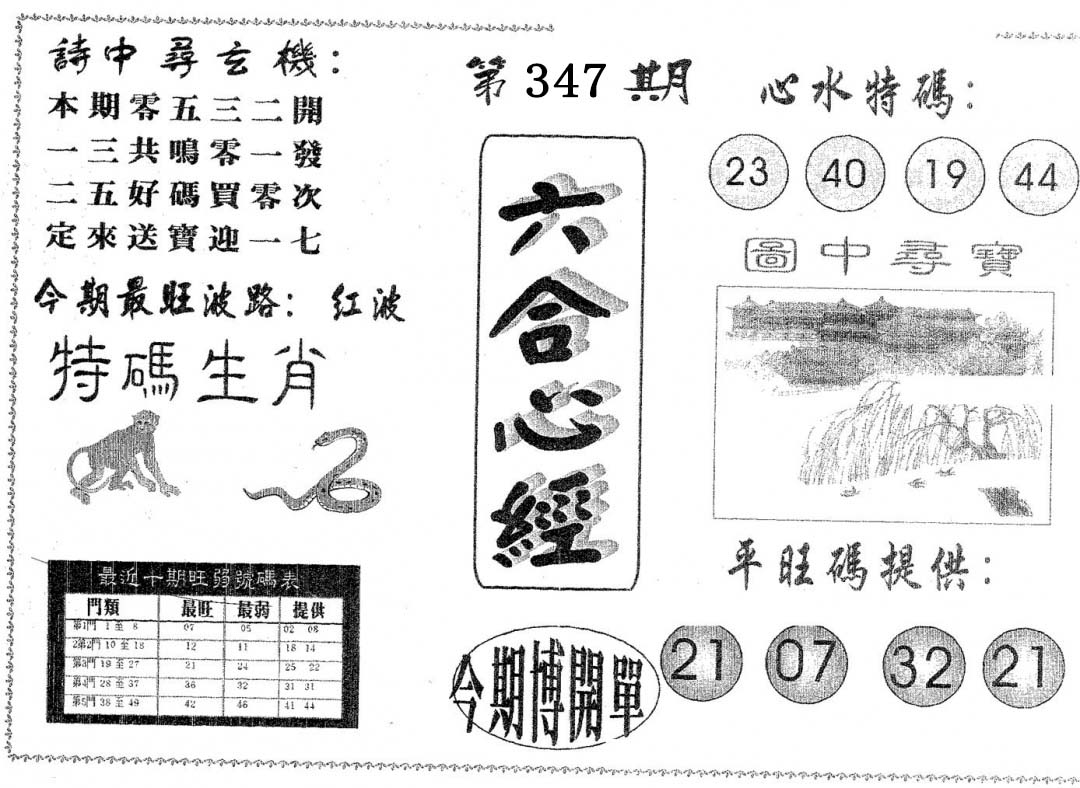 詩中尋玄機：
本期零五三二開
一三共鳴零一發
二五好碼買零次
定來送寶迎一七
今期最旺波路：红波
特碼生肖
最近十期旺弱號碼表
門類 最旺 最弱 提供
第1門 1至8 07 05 02 08
2第2門 10至18 12 11 18 14
第3門 19至27 21 24 25 22
第4門 28至37 36 32 31 31
第5門 38至49 42 46 41 44
第347期
六合心經
今期博開單
心水特碼：
23 40 19 44
圖中尋寶
平旺碼提供：
21 07 32 21